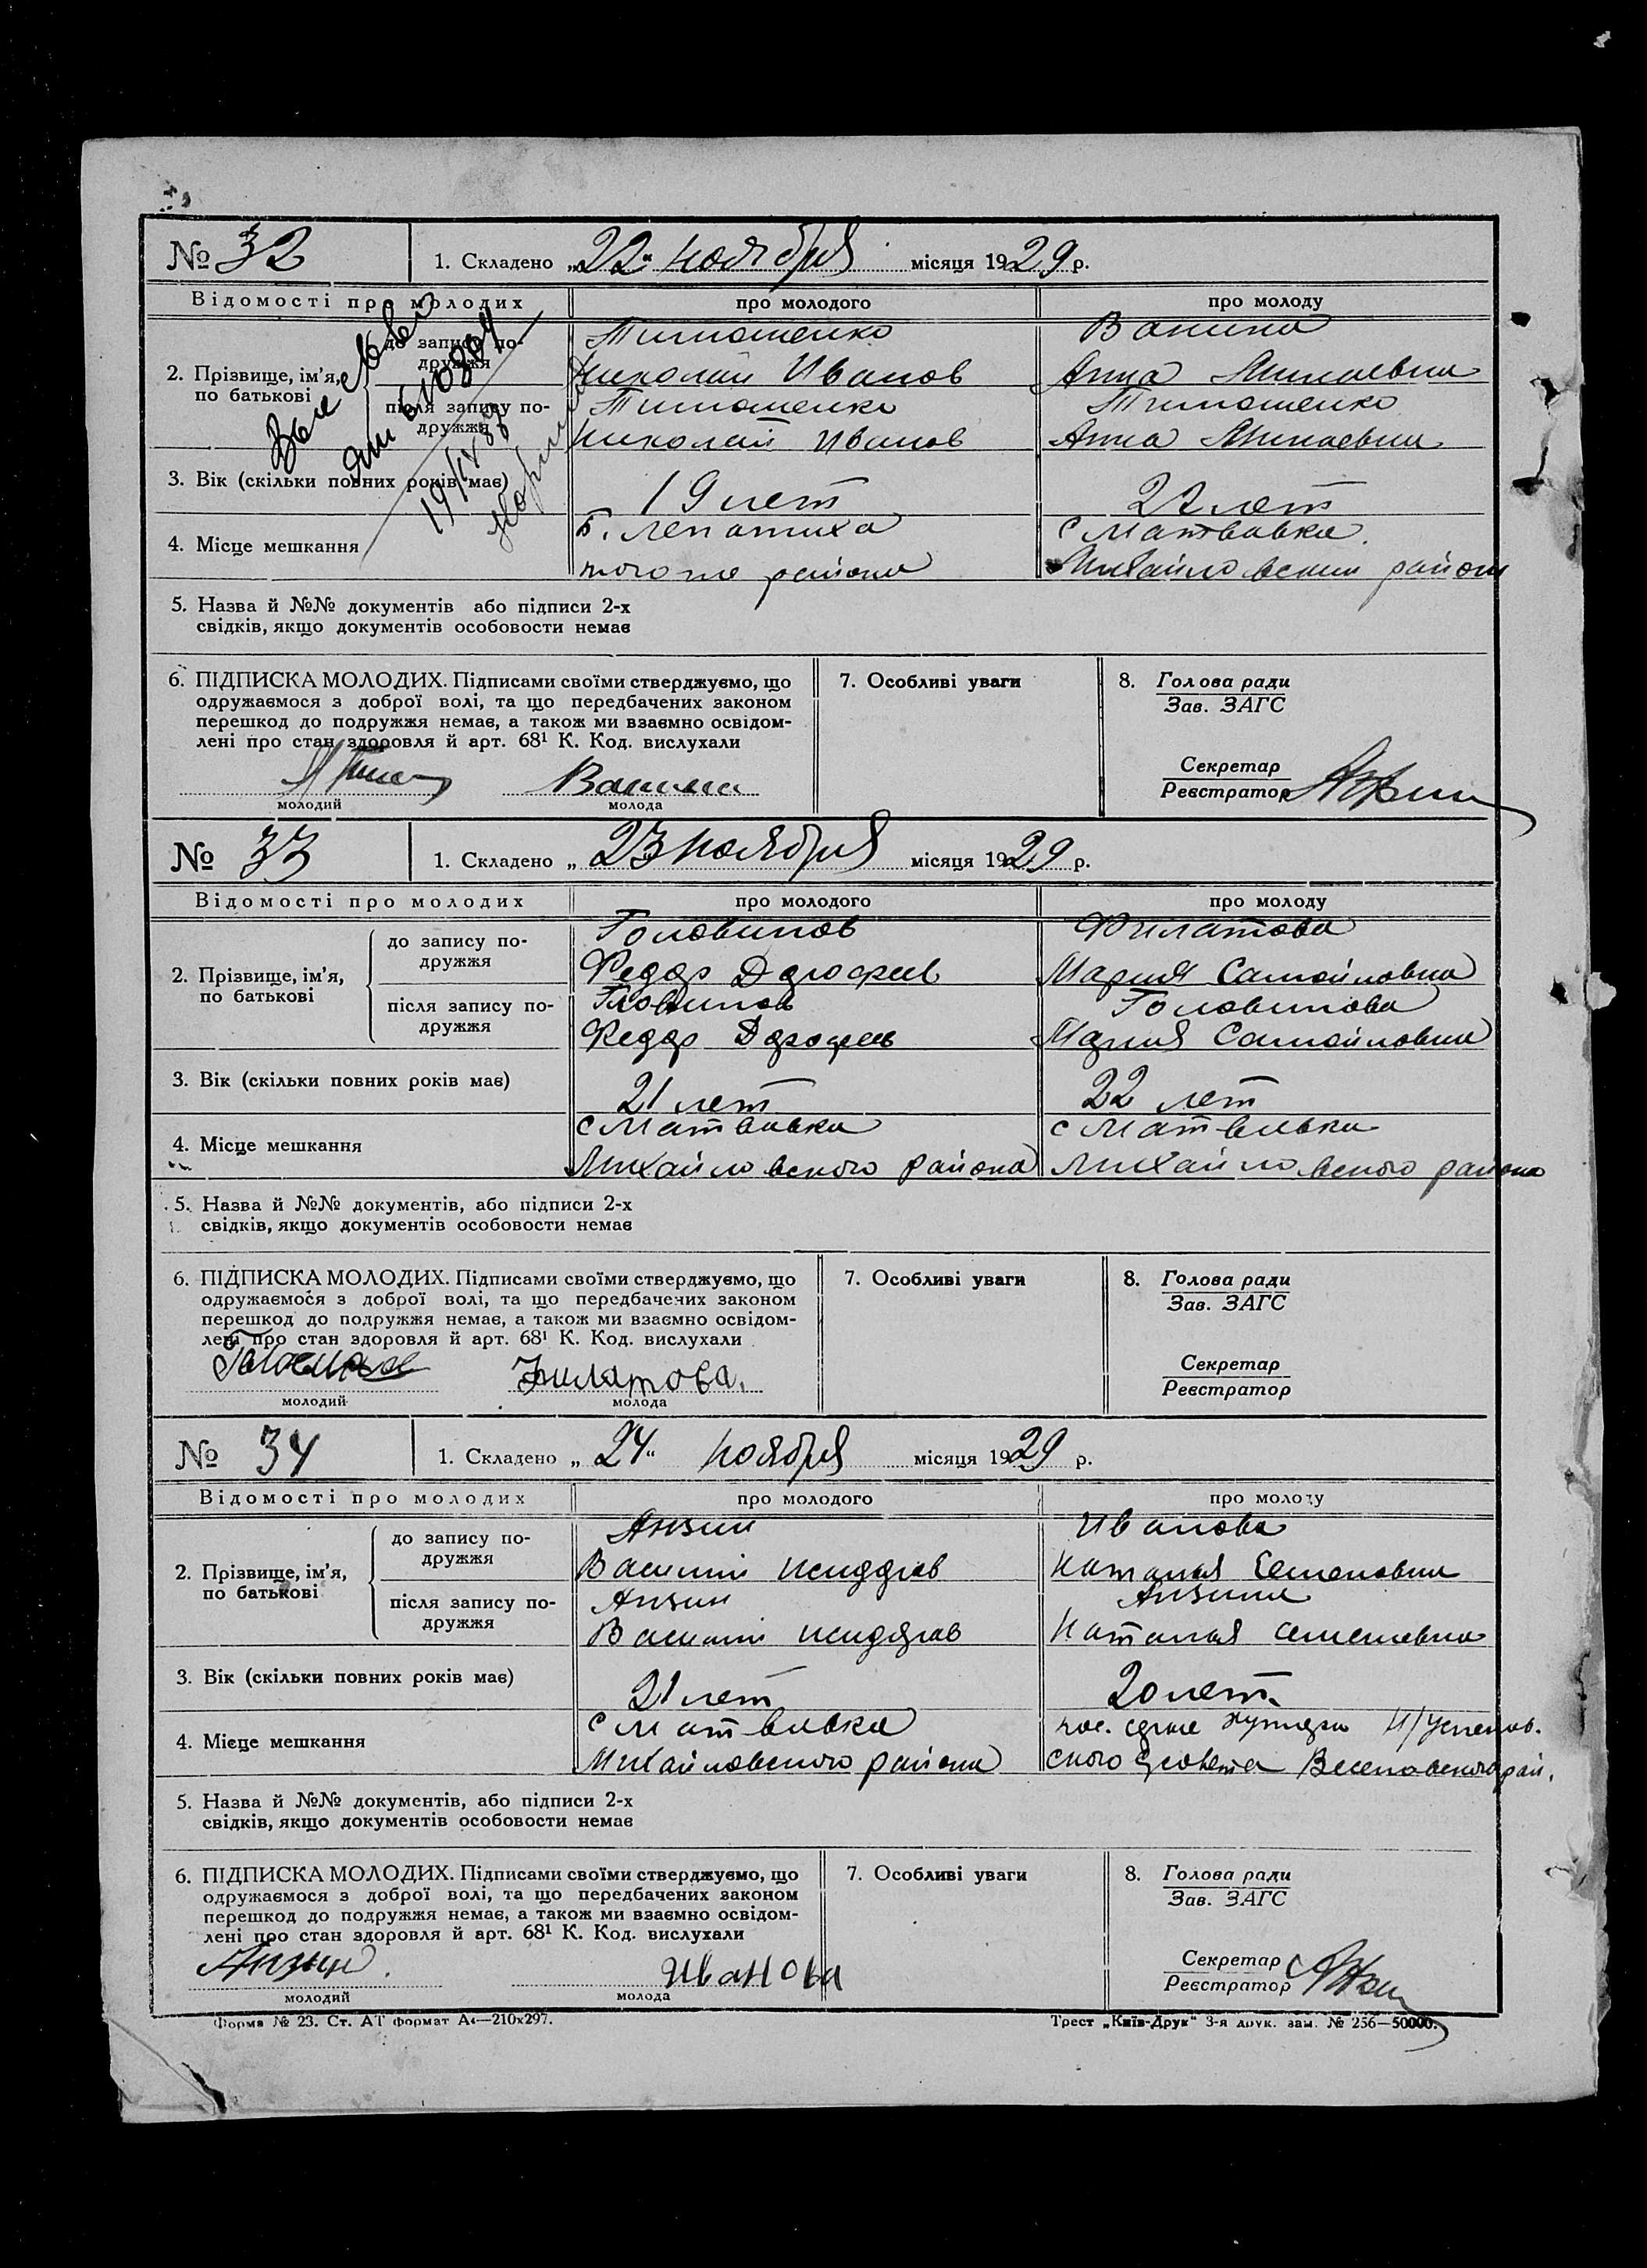 № 32 1. Складено „22“ ноября місяця 1929 р.
Відомості про молодих про молодого про молоду
2. Прізвище, ім'я, по батькові
до запису подружжя
Тимошенко Ванина
Николай Иванов Анна Минаевна
після запису подружжя
Тимошенко Тимошенко
Николай Иванов Анна Минаевна
19/IX
3. Вік (скільки повних років має) 19 лет 22 лет
4. Місце мешкання Б. Лепатиха с Матвавка.
того же района Михайловский район
5. Назва й №№ документів або підписи 2-х
свідків, якщо документів особовости немає
6. ПІДПИСКА МОЛОДИХ. Підписами своїми стверджуємо, що
одружаємося з доброї волі, та що передбачених законом
перешкод до подружжя немає, а також ми взаємно освідом-
лені про стан здоровля й арт. 68¹ К. Код. вислухали
Ванина
молодий молода
7. Особливі уваги
8. Голова ради
Зав. ЗАГС
Секретар
Реєстратор
№ 33 1. Складено „ 23 ноября місяця 1929 р.
Відомості про молодих про молодого про молоду
2. Прізвище, ім'я,
по батькові
до запису по-
дружжя
Головинов Филатова
Федор Дорофеев Мария Самойловна
після запису по-
дружжя
Гловинов Головинова
Федор Дорофеев Мария Самойловна
3. Вік (скільки повних років має) 21 лет 22 лет
4. Місце мешкання с Матвавка с Матвевка
Михайловского района Михайловского района
5. Назва й №№ документів, або підписи 2-х
свідків, якщо документів особовости немає
6. ПІДПИСКА МОЛОДИХ. Підписами своїми стверджуємо, що
одружаємося з доброї волі, та що передбачених законом
перешкод до подружжя немає, а також ми взаємно освідом-
лені про стан здоровля й арт. 68¹ К. Код. вислухали
Филатова.
молодий молода
7. Особливі уваги
8. Голова ради
Зав. ЗАГС
Секретар
Реєстратор
№ 34 1. Складено „ 24“ ноября місяця 1929 р.
Відомості про молодих про молодого про молоду
2. Прізвище, ім'я,
по батькові
до запису по-
дружжя
Анзин Иванова
Василий Исидоров Наталия Семеновна
після запису по-
дружжя
Анзин Анзина
Василий Исидоров Наталия Семеновна
3. Вік (скільки повних років має) 21 лет 20 лет.
4. Місце мешкання с Матвевка
Михайловского района ского Веселовского рай.
5. Назва й №№ документів, або підписи 2-х
свідків, якщо документів особовости немає
6. ПІДПИСКА МОЛОДИХ. Підписами своїми стверджуємо, що
одружаємося з доброї волі, та що передбачених законом
перешкод до подружжя немає, а також ми взаємно освідом-
лені про стан здоровля й арт. 68¹ К. Код. вислухали
Анзин. Иванова
молодий молода
7. Особливі уваги
8. Голова ради
Зав. ЗАГС
Секретар
Реєстратор
Форма № 23. Ст. АТ формат А4—210х297. Трест „Київ-Друк“ 3-я друк. зам. № 256—50000.